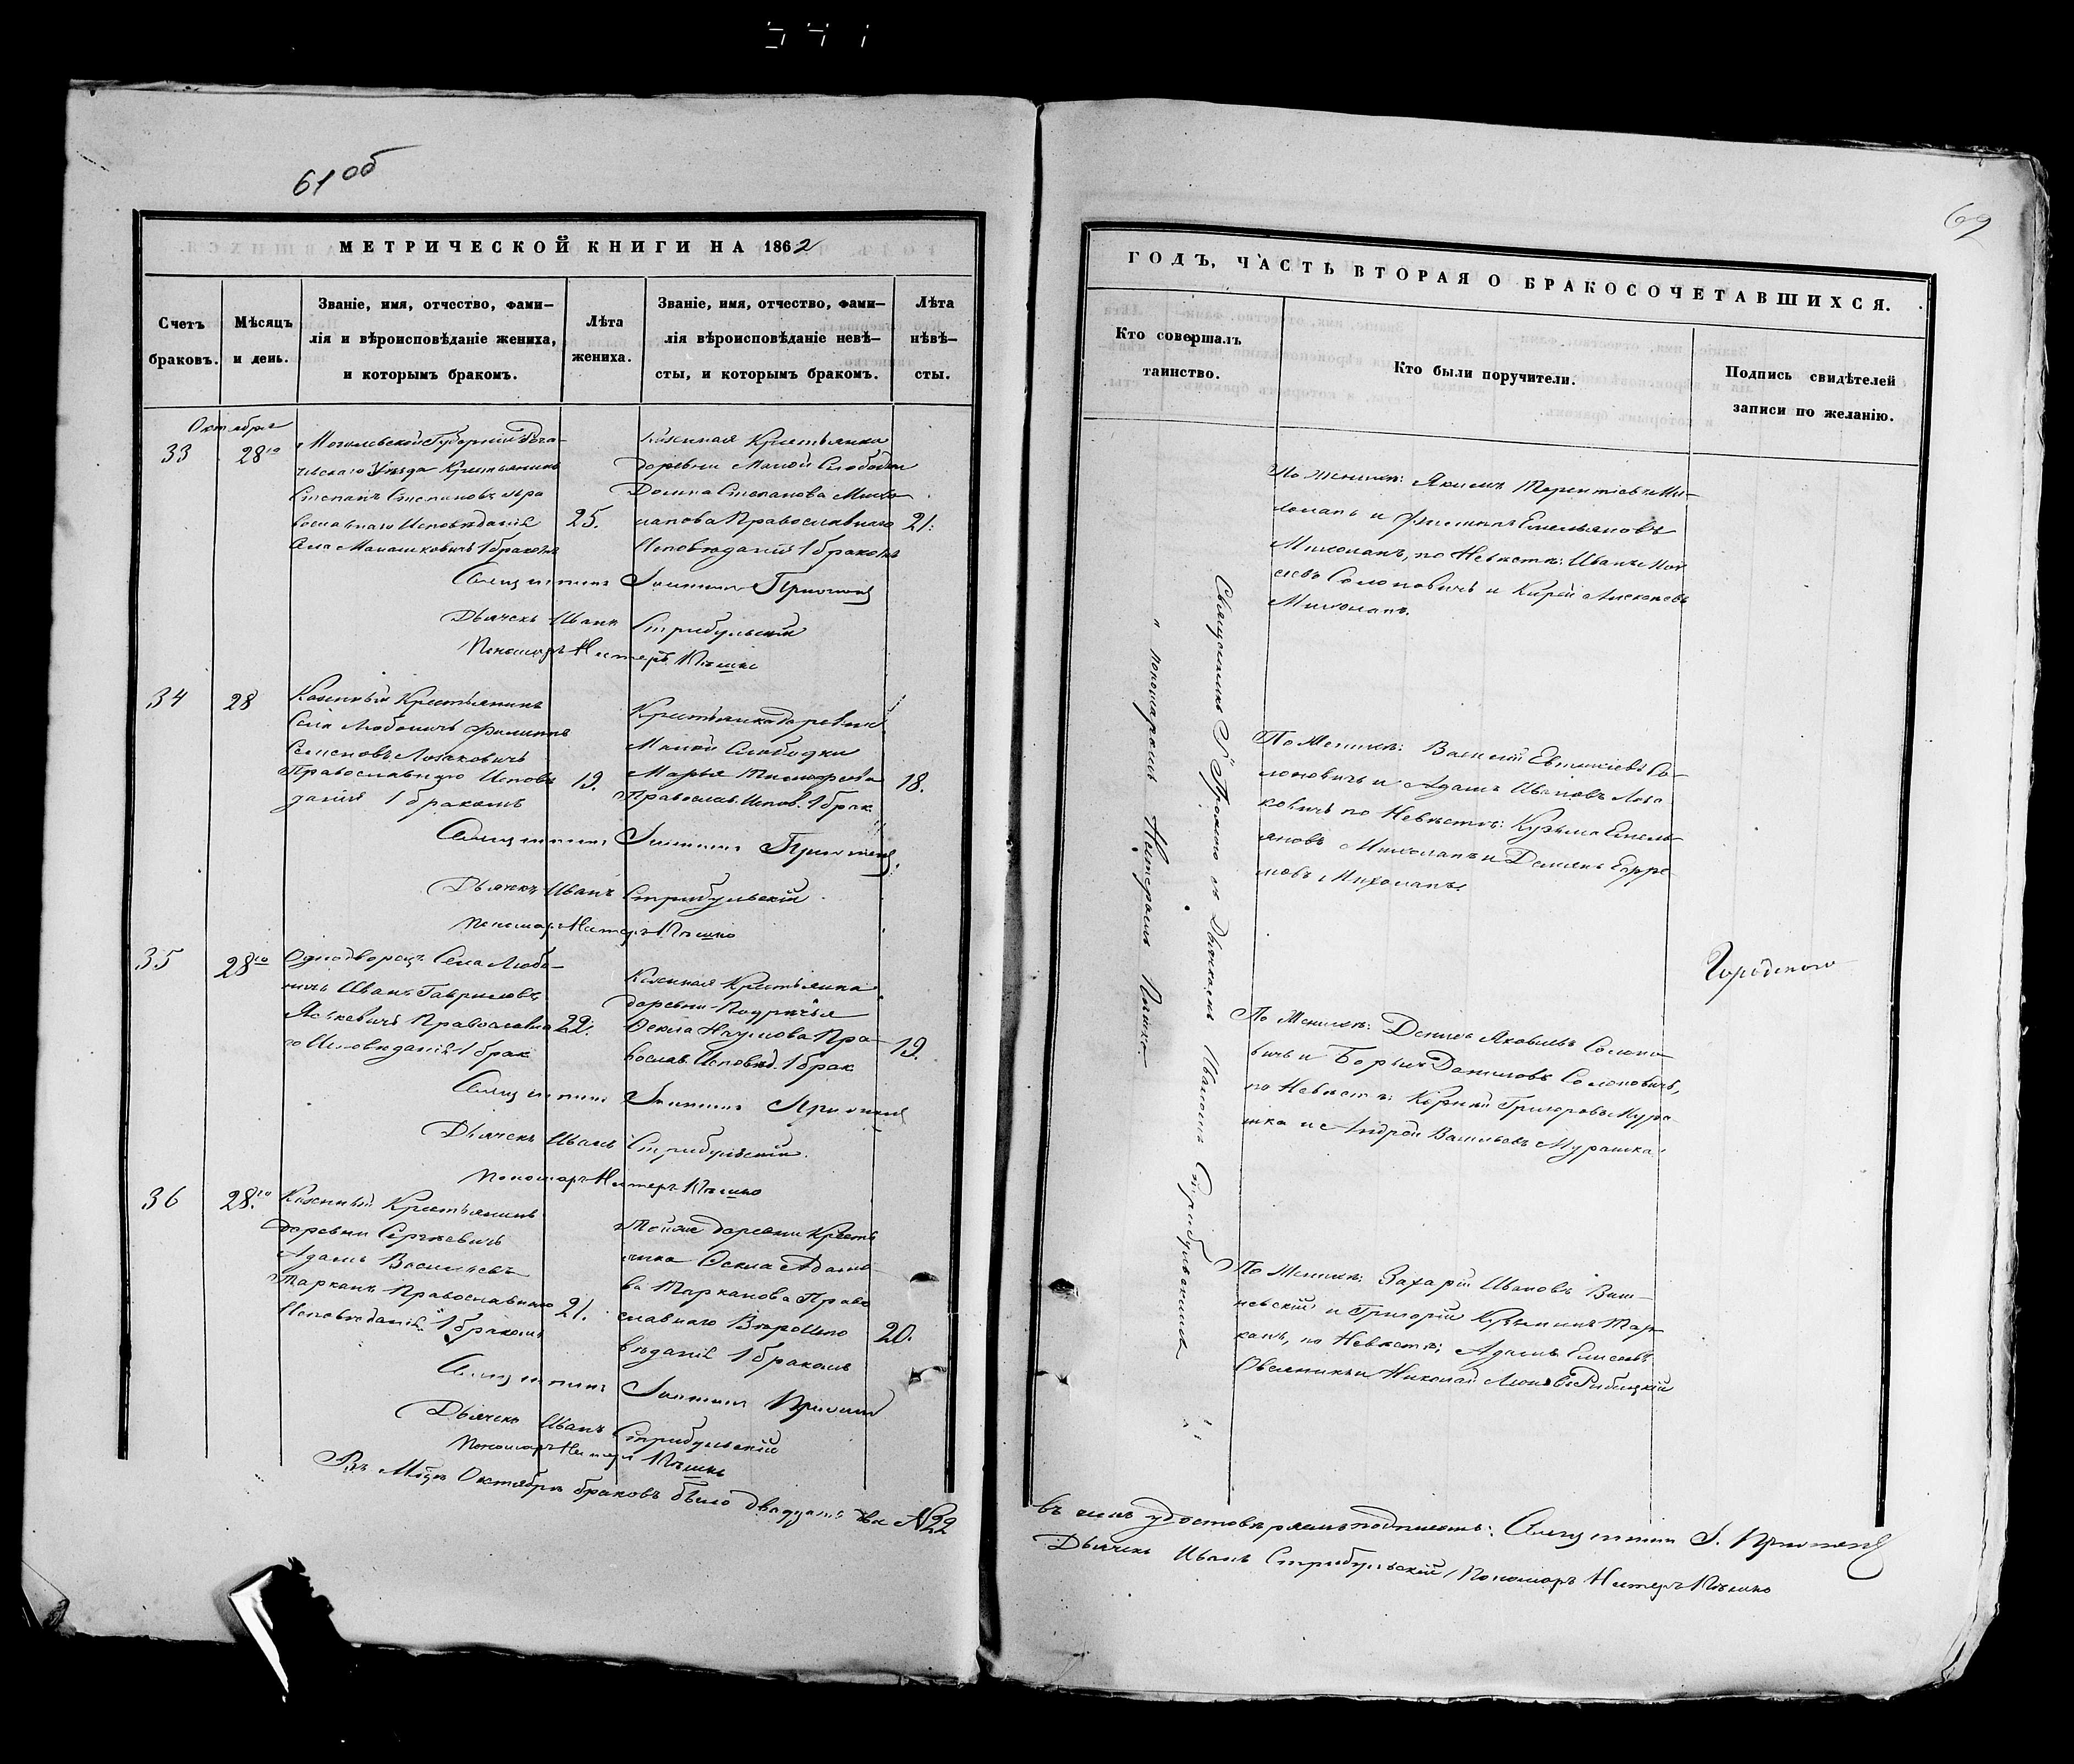 541
61 об
62
МЕТРИЧЕСКОЙ КНИГИ НА 1862
Счетъ
браковъ.
Мѣсяцъ
и день.
Званіе, имя, отчество, фами—
лія и вѣроисповѣданіе жениха,
и которымъ бракомъ.
Лѣта
жениха.
Званіе, имя, отчество, фами—
лія вѣроисповѣданіе невѣ—
сты, и которымъ бракомъ.
Лѣта
нѣвѣ—
сты.
Октября
33
28го
Могилевской Губерніи Рога-
чевскаго Уѣзда Крестьянинъ
Степанъ Степановъ пра
вославнаго Исповѣданія
1 бракомъ
25.
Казенная Крестьянка
деревни Малой Слободки
Домна Степанова Михо
лапова Православнаго
Исповѣданія 1 бракомъ
21.
Священникъ Іоаннъ
Дьячекъ Иванъ Стрибульскій
Пономарь Нестеръ Пѣшко
34
28
Казенный Крестьянинъ
Села Любоничъ Филиппъ
Семеновъ Лозаковичъ
Православнаго Исповѣ
данія 1 бракомъ
19.
Крестьянка деревни
Малой Слободки
Марья Тимофеева
Православ. Испов. 1 брак
18.
Священникъ Іоаннъ
Дьячекъ Иванъ Стрибульскій
Пономарь Нестеръ Пѣшко
35
28го
Однодворецъ Села Любо-
ничъ Иванъ Гавриловъ
Православна
го Исповѣданія 1 брак
22.
Казенная Крестьянка
деревни Подрѣчья
Фекла Наумова Пра-
вослав. Исповѣд. 1 брак
19.
Священникъ Іоаннъ
Дьячекъ Иванъ Стрибульскій
Пономарь Нестеръ Пѣшко
36
28го
Казенный Крестьянинъ
деревни Сергѣевичъ
Адамъ Васильевъ
Тарканъ Православнаго
Исповѣданія 1 бракомъ
21.
Тойже деревни Кресть
янка Фекла Адамо
ва Тарканова Право
славнаго Вѣроиспо
вѣданія 1 бракомъ
20.
Священникъ Іоаннъ
Дьячекъ Иванъ Стрибульскій
Пономарь Нестеръ Пѣшко
Въ Мѣцѣ Октябрѣ браковъ было двадцать два №22
ГОДЪ, ЧАСТЬ ВТОРАЯ О БРАКОСОЧЕТАВШИХСЯ.
Кто совершалъ
таинство.
Кто были поручители.
Подпись свидѣтелей
записи по желанію.
Священникъ съ Дьячкомъ Иваномъ Стрибульскимъ
и пономаремъ Нестеромъ Пѣшко
По женихѣ: Якимъ Терентіевъ Ми-
холапъ и Филиппъ Емельяновъ
Михолапъ, по Невѣстѣ: Иванъ
Солоновичъ и Кирей Алексѣевъ
Михолапъ.
По Женихѣ: Василій Евтихіевъ Со-
лоновичъ и Адамъ Ивановъ Лоза
ковичъ по Невѣстѣ: Кузьма Емель-
яновъ Михолапъ и Демьянъ Ефре
мовъ Михолапъ.
По Женихѣ: Денисъ Яковлевъ Солоно-
вичъ и Борисъ Даниловъ Солоновичъ,
по Невѣстѣ: Корній Григорьевъ Мура-
шка и Андрей Васильевъ Мурашка.
По Женихѣ: Захарій Ивановъ Виш-
невскій и Григорій Кузьминъ Тар-
канъ, по Невѣстѣ: Адамъ
и Николай
въ чемъ удостовѣряемъ подписомъ: Священникъ І.
Дьячекъ Иванъ Стрибульскій, Пономарь Нестеръ Пѣшко